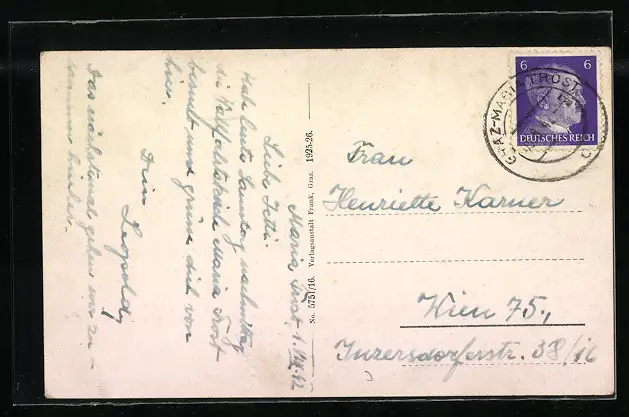 Maria Trost, 1. VIII. 42
Liebe Jetti!
Habe heute Samstag nachmittag
die Wallfahrtskirche Maria Trost
besucht und grüsse dich von
hier.
Dein Leopold,
Das nächstemal gehen wir zu-
sammen hinter.
No. 5751/16. Verlagsanstalt Frank, Graz. 1925-26.
6 6
DEUTSCHES REICH
GRAZ-MARIATROST
Frau
Henriette Karner
Wien 75.,
Inzersdorferstr. 38/